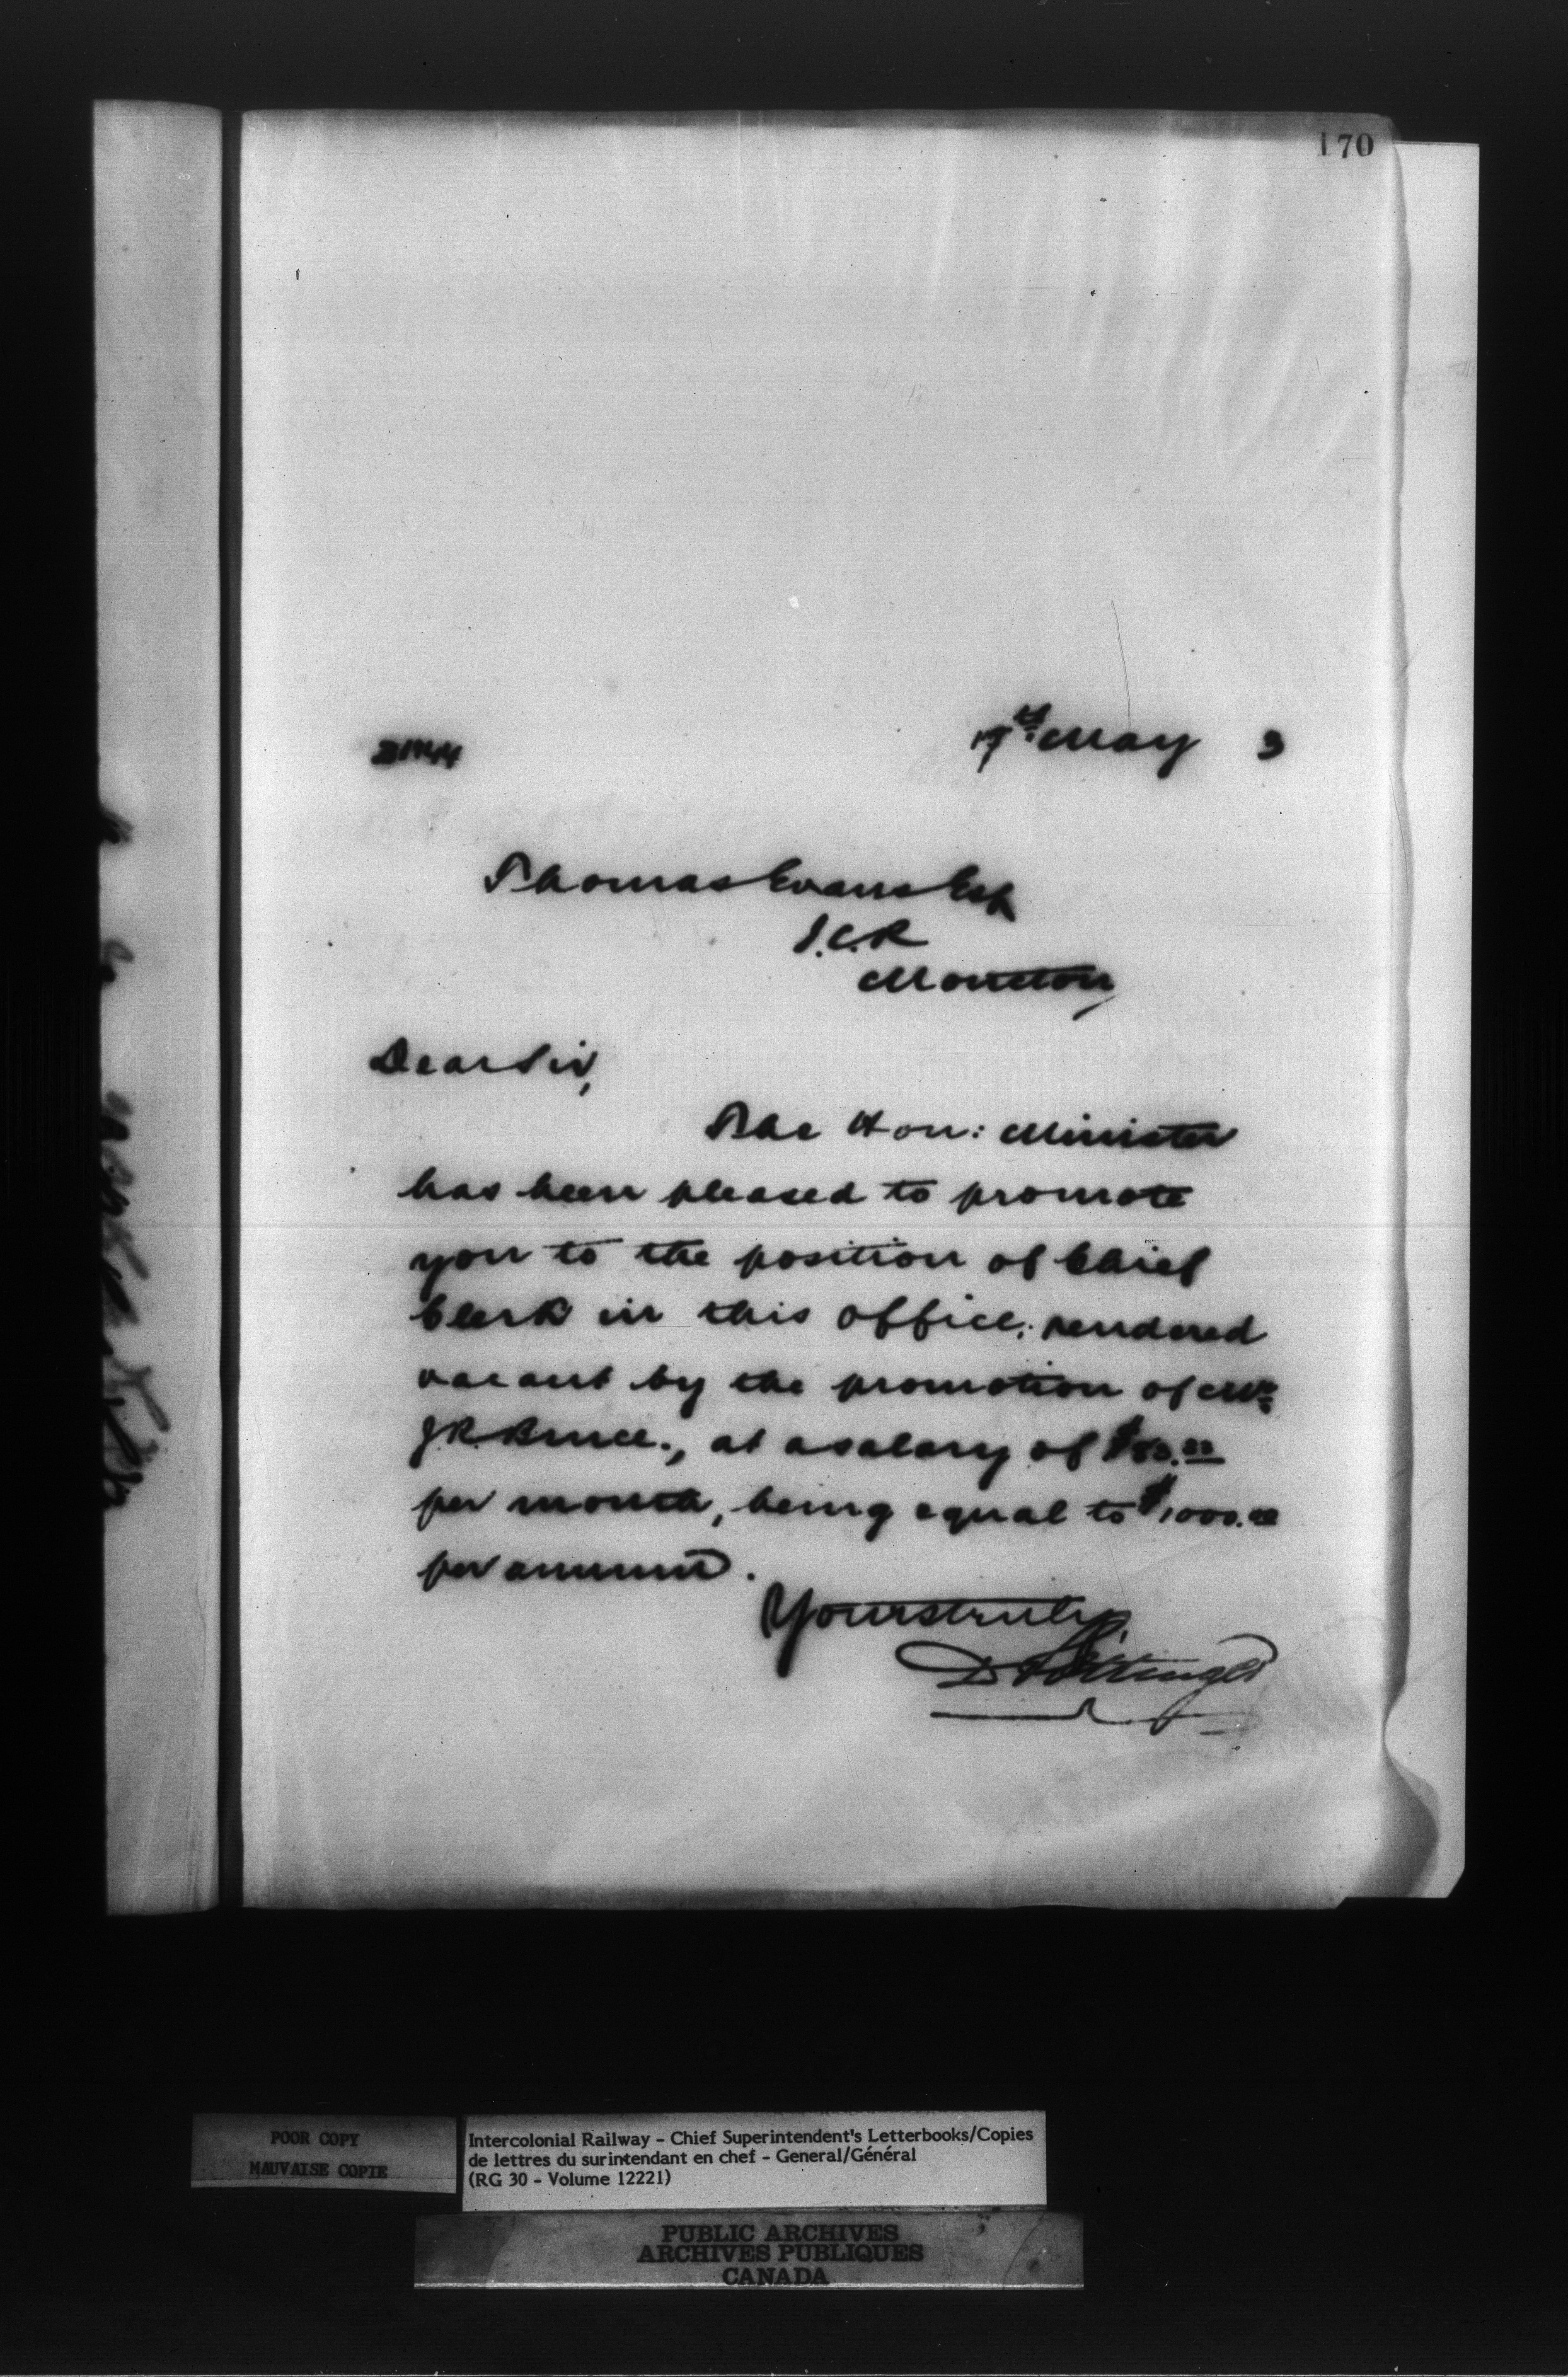 170
19th May 3
Thomas Evans Esq
I.C.R
Moncton
Dear Sir,
The Hon: Minister
has been pleased to promote
you to the position of Chief
Clerk in this office, rendered
vacant by the promotion of Mr
J.R. Bruce., at a salary of
per month, being equal to $1000.00
per annum.
Yours truly,
D Pottinger
POOR COPY
MAUVAISE COPIE
Intercolonial Railway - Chief Superintendent's Letterbooks/Copies
de lettres du surintendant en chef - General/Général
(RG 30 - Volume 12221)
PUBLIC ARCHIVES
ARCHIVES PUBLIQUES
CANADA